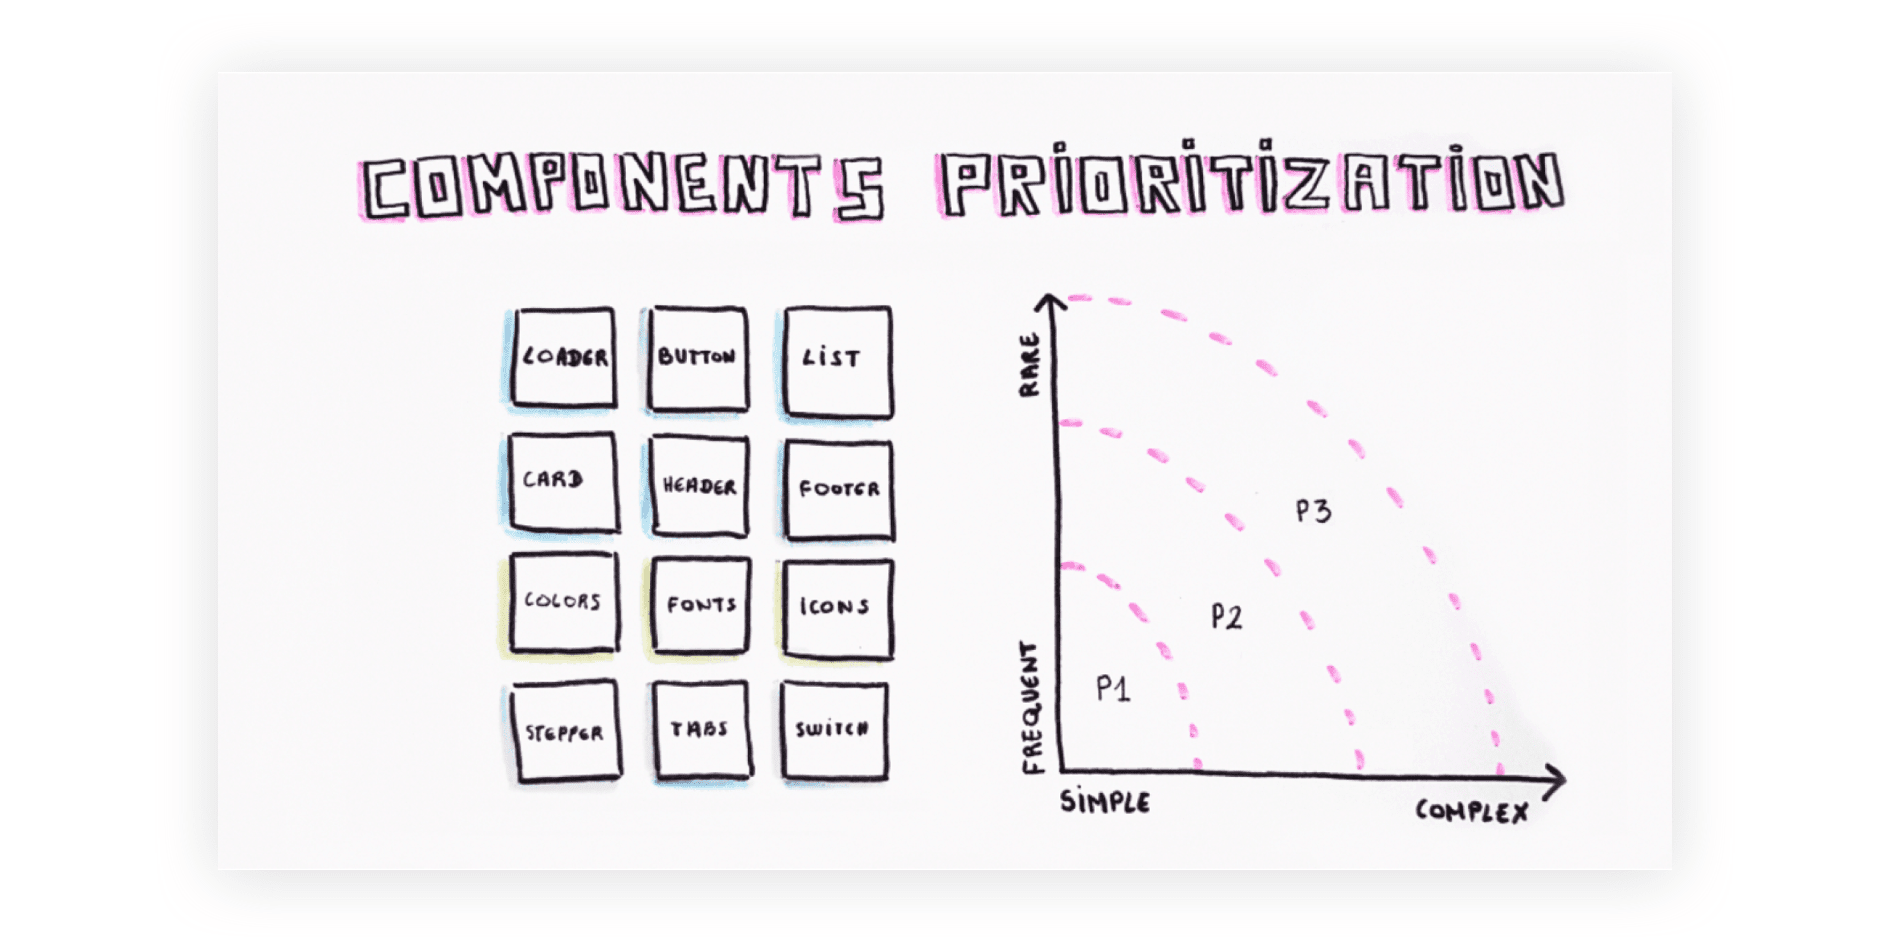 COMPONENTS PRIORITIZATION
LOADER BUTTON LIST
CARD HEADER FOOTER
COLORS FONTS ICONS
STEPPER TABS SWITCH
RARE
FREQUENT
P3
P2
P1
SIMPLE COMPLEX